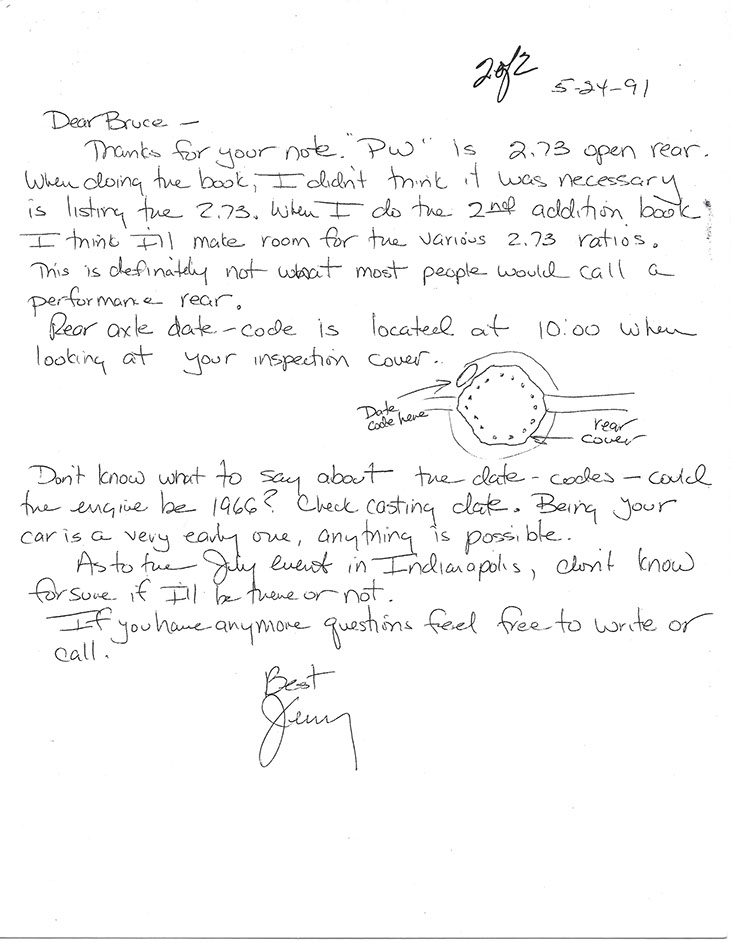 2 of 2
5-24-91
Dear Bruce –
Thanks for your note. "PW" is 2.73 open rear.
When doing the book, I didn't think it was necessary
is listing the 2.73. When I do the 2nd addition book
I think I'll make room for the various 2.73 ratios.
This is definately not what most people would call a
performance rear.
Rear axle date-code is located at 10:00 when
looking at your inspection cover.
Date
code here
rear
cover
Don't know what to say about the date-codes – could
the engine be 1966? Check casting date. Being your
car is a very early one, anything is possible.
As to the July event in Indianapolis, don't know
for sure if I'll be there or not.
If you have anymore questions feel free to write or
call.
Best
Jerry